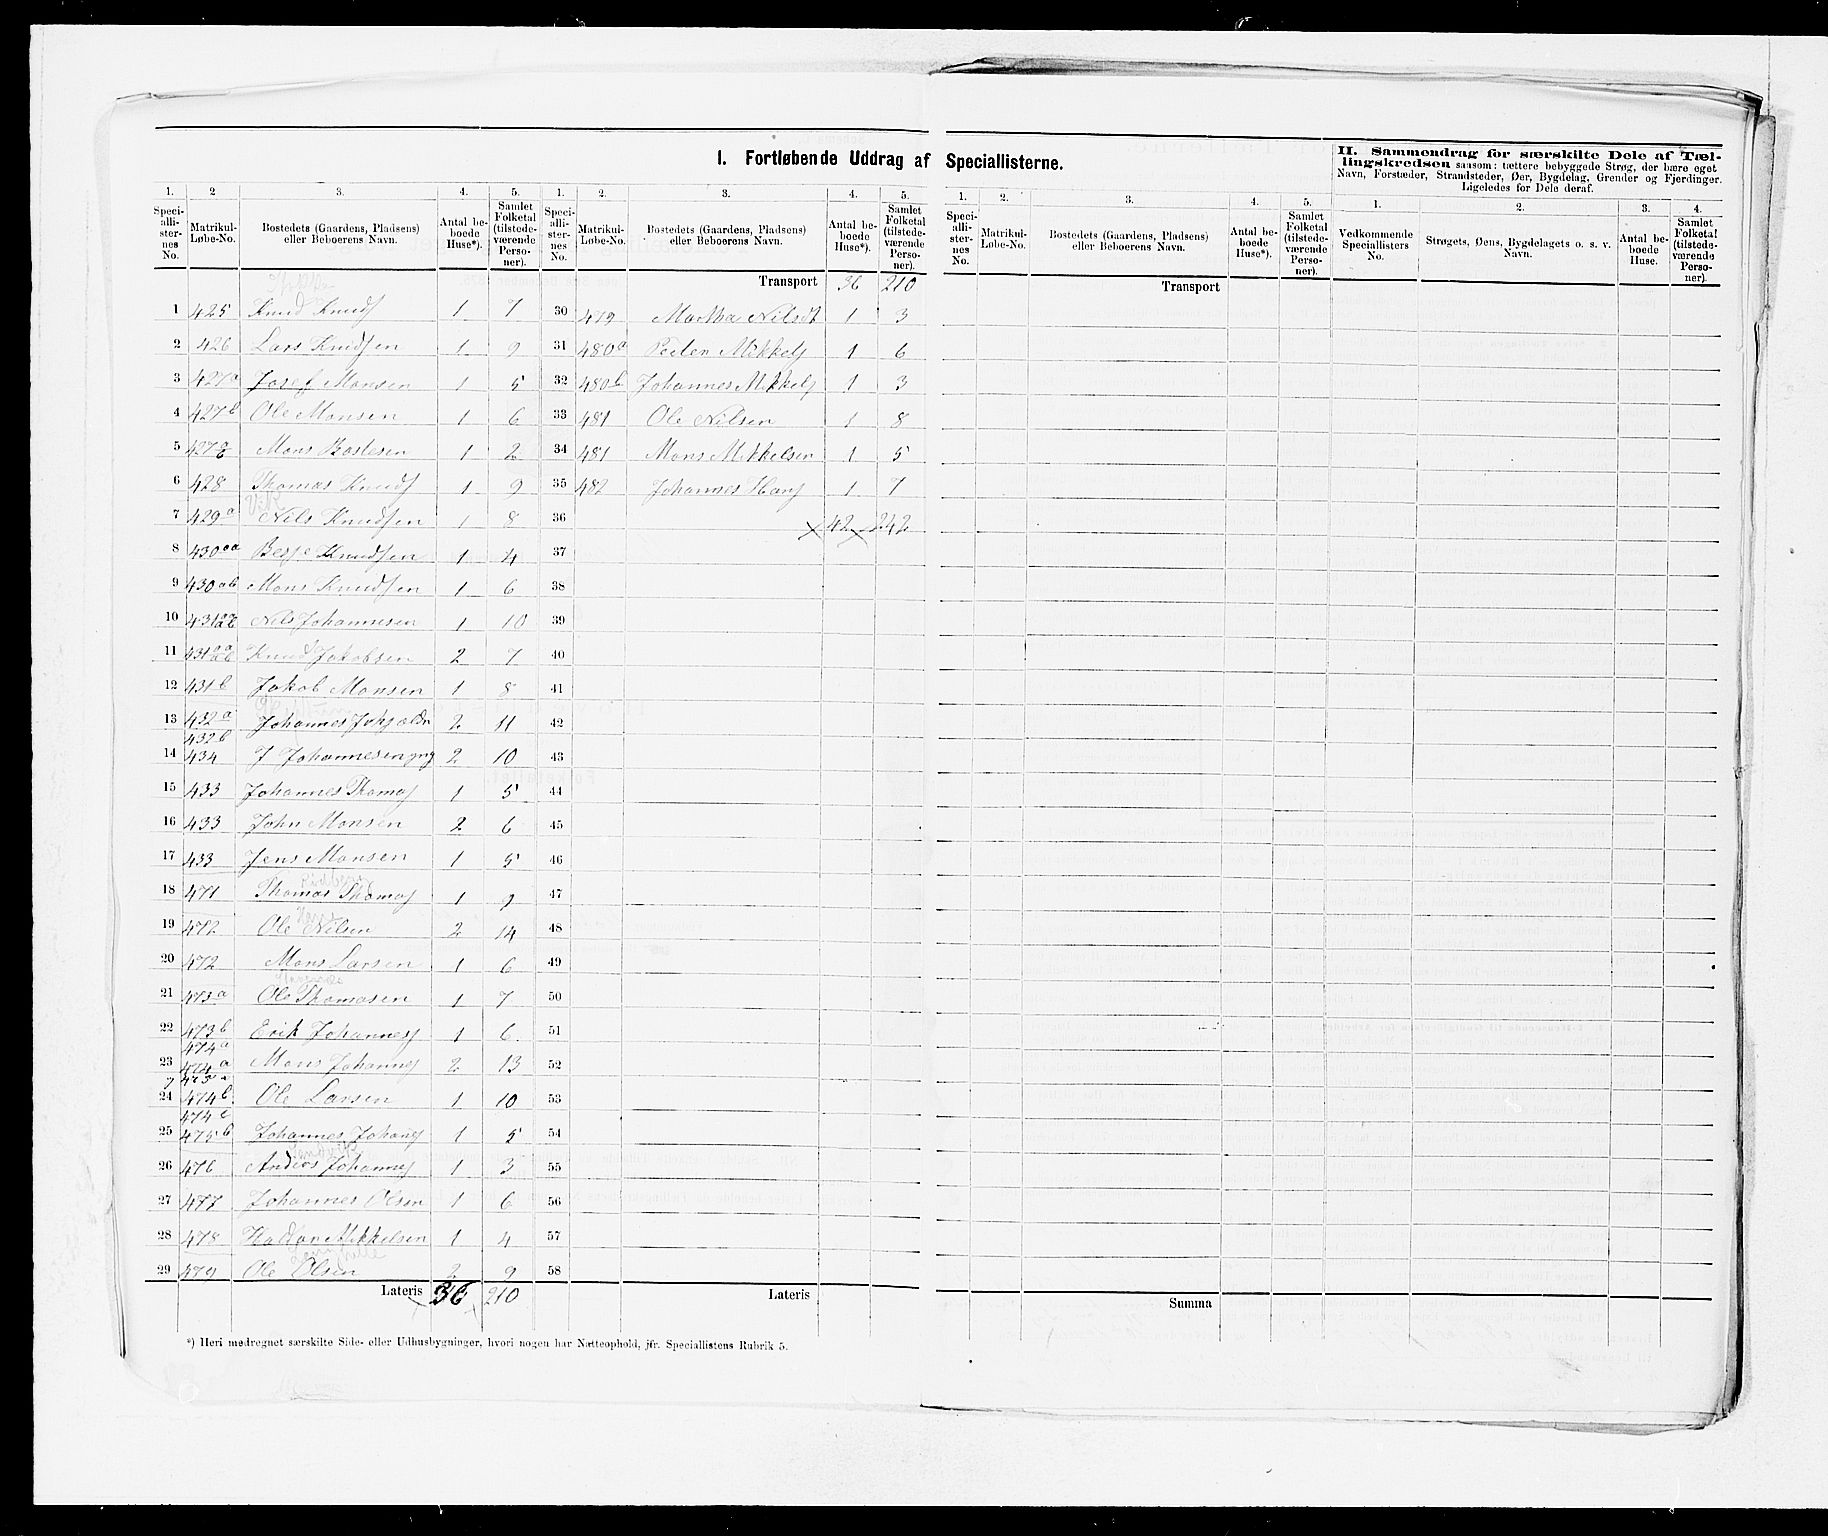 I. Fortløbende Uddrag af Speciallisterne.
II. Sammendrag for særskilte Dele af Tællingskredsen saasom: tættere bebyggede Strøg, der bære eget Navn, Forstæder, Strandsteder, Øer, Bygdelag, Grender og Fjerdinger. Ligeledes for Dele deraf.
1. 2 3. 4. 5. 1. 2. 3. 4. 5. 1. 2. 3. 4. 5. 1. 2. 3. 4.
Speciallisternes No. Matrikul-Løbe-No. Bostedets (Gaardens, Pladsens) eller Beboerens Navn. Antal beboede Huse*). Samlet Folketal (tilstedeværende Personer).
Speciallisternes No. Matrikul-Løbe-No. Bostedets (Gaardens, Pladsens) eller Beboerens Navn. Antal beboede Huse*). Samlet Folketal (tilstedeværende Personer).
Speciallisternes No. Matrikul-Løbe-No. Bostedets (Gaardens, Pladsens) eller Beboerens Navn. Antal beboede Huse*). Samlet Folketal (tilstedeværende Personer).
Vedkommende Speciallisters No. Strøgets, Øens, Bygdelagets o. s. v. Navn. Antal beboede Huse. Samlet Folketal (tilstedeværende Personer).
Transport 36 210
Transport
1 425 Knud Knuds 1 7 30 479 Martha Nilsdt 1 3
2 426 Lars Knudsen 1 9 31 480a Peder Mikkels 1 6
3 427a Josef Monsen 1 5 32 480b Johannes Mikkels 1 3
4 427b Ole Monsen 1 6 33 481 Ole Nilsen 1 8
5 427 Mons 1 2 34 481 Mons Mikkelsen 1 5
6 428 Thomas Knuds 1 9 35 482 Johannes Hans 1 7
Vik
7 429a Nils Knudsen 1 8 36 42 242
8 430aa Knudsen 1 4 37
9 430ab Mons Knudsen 1 6 38
10 431 Nils Johannesen 1 10 39
11 431 Knud Jakobsen 2 7 40
12 431b Jakob Monsen 1 8 41
13 432a Johannes Johs ældr 2 11 42
432b
14 434 J Johannesen yng 2 10 43
15 433 Johannes Thomas 1 5 44
16 433 John Monsen 2 6 45
17 433 Jens Monsen 1 5 46
18 471 Thomas Thomas 1 9 47
19 472 Ole Nilsen 2 14 48
20 472 Mons Larsen 1 6 49
21 473a Ole Thomasen 1 7 50
22 473b Erik Johannes 1 6 51
474a
23 474a Mons Johannes 2 13 52
24 474b Ole Larsen 1 10 53
474c
25 475b Johannes Johans 1 5 54
26 476 Andres Johannes 1 3 55
27 477 Johannes Olsen 1 6 56
28 478 Haldor Mikkelsen 1 4 57
29 479 Ole Olsen 2 9 58
Lateris 36 210 Lateris Summa
*) Heri medregnet særskilte Side- eller Udhusbygninger, hvori nogen har Natteophold, jfr. Speciallistens Rubrik 5.